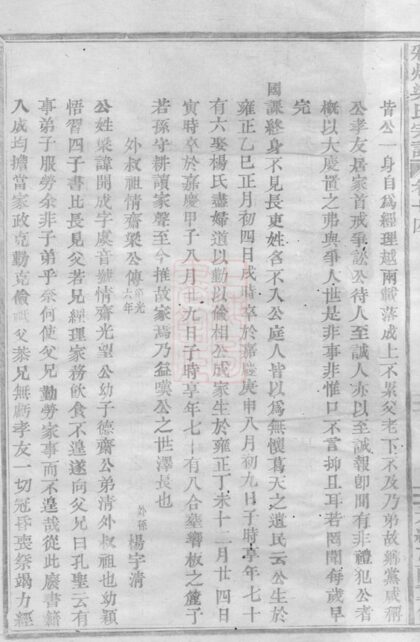 皆公一身自爲經理越兩載落成上不累父老下不及乃弟故鄉黨咸稱
公孝友居家首戒爭訟公待人至誠人亦以至誠報卽間有非禮犯公者
概以大度置之弗與爭人世是非事非惟口不言抑且耳若罔聞每歲早
完
國課終身不見長吏姓名不入公庭人皆以爲無懷葛天之遺民云公生於
雍正乙巳正月初四日戌時卒於嘉慶庚申八月初九日子時享年七十
有六娶楊氏盡婦道以勤以儉相公成家生於雍正丁未十二月廿四日
寅時卒於嘉慶甲子八月廿九日子時享年七十有八合葬磚板之麓子
若孫守耕讀家聲至今推故家焉乃益嘆公之世澤長也
外孫 楊宇清
外叔祖情齋梁公傳
公姓梁諱開成字虞音號情齋光望公幼子德齋公弟清外叔祖也幼穎
悟習四子書比長見父若兄經理家務飲食不遑遂向父兄曰孔聖云有
事弟子服勞余非子弟乎奈何使父兄勤勞家事而不遑哉從此廢書籍
入成均擔當家政克勤克儉 父恭兄無虧孝友一切冠昏喪祭竭力經